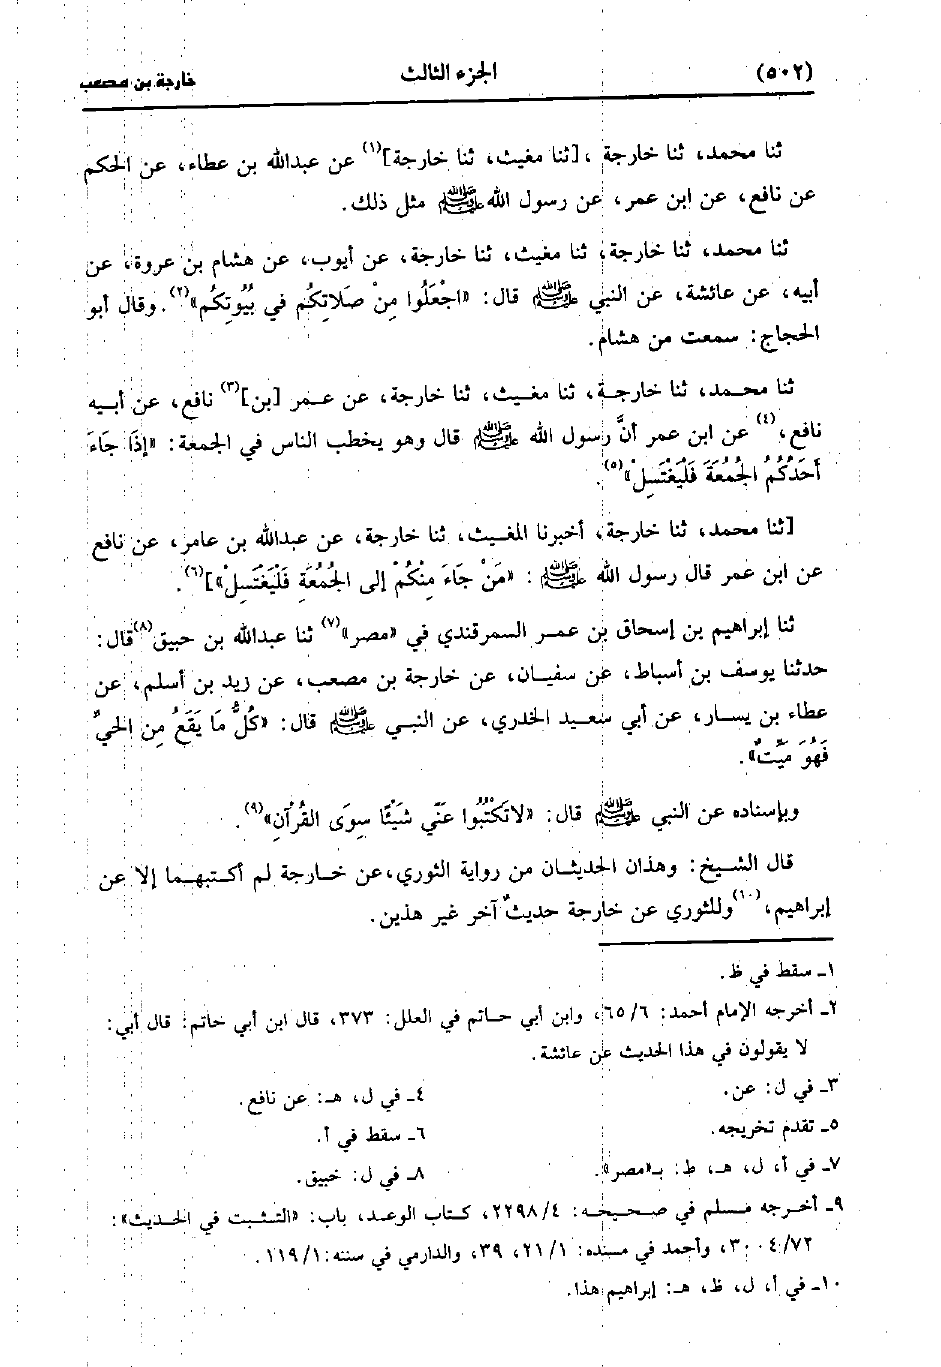 (٥٠٢) الجزء الثالث خارجة بن مصعب
ثنا محمد، ثنا خارجة ،[ثنا مغيث، ثنا خارجة](١) عن عبدالله بن عطاء، عن الحكم
عن نافع، عن ابن عمر، عن رسول الله ﷺ مثل ذلك.
ثنا محمد، ثنا خارجة، ثنا مغيث، ثنا خارجة، عن أيوب، عن هشام بن عروة، عن
أبيه، عن عائشة، عن النبي ﷺ قال: «اجْعَلُوا مِنْ صَلاتِكُم في بُيُوتِكُم»(٢). وقال أبو
الحجاج: سمعت من هشام.
ثنا محمد، ثنا خارجة، ثنا مغيث، ثنا خارجة، عن عمر [بن](٣) نافع، عن أبيه
نافع،(٤) عن ابن عمر أنَّ رسول الله ﷺ قال وهو يخطب الناس في الجمعة: «إذَا جَاءَ
أَحَدُكُمُ الجُمُعَةَ فَلْيَغْتَسِلْ»(٥).
[ثنا محمد، ثنا خارجة، أخبرنا المغيث، ثنا خارجة، عن عبدالله بن عامر، عن نافع
عن ابن عمر قال رسول الله ﷺ : «مَنْ جَاءَ مِنْكُمْ إلى الجُمُعَةِ فَلْيَغْتَسِلْ»](٦).
ثنا إبراهيم بن إسحاق بن عمر السمرقندي في «مصر»(٧) ثنا عبدالله بن حبيق(٨)قال:
حدثنا يوسف بن أسباط، عن سفيان، عن خارجة بن مصعب، عن زيد بن أسلم، عن
عطاء بن يسار، عن أبي سعيد الخدري، عن النبي ﷺ قال: «كُلُّ مَا يَقَعُ مِن الحيِّ
فَهُوَ مَيِّتٌ».
وبإسناده عن النبي ﷺ قال: «لاتَكْتُبُوا عَنِّي شَيْئًا سِوَى القُرْآنِ»(٩).
قال الشيخ: وهذان الحديثان من رواية الثوري،عن خارجة لم أكتبهما إلا عن
إبراهيم،(١٠)وللثوري عن خارجة حديثٌ آخر غير هذين.
١ـ سقط في ظ.
٢ـ أخرجه الإمام أحمد: ٦٥/٦، وابن أبي حاتم في العلل: ٣٧٣، قال ابن أبي حاتم: قال أبي:
لا يقولون في هذا الحديث عن عائشة.
٣ـ في ل: عن. ٤ـ في ل، هـ: عن نافع.
٥ـ تقدم تخريجه. ٦ـ سقط في أ.
٧ـ في أ، ل، هـ، ط: بـ«مصر». ٨ـ في ل: خبيق.
٩ـ أخرجه مسلم في صحيحه: ٢٢٩٨/٤، كتاب الوعد، باب: «التثبت في الحديث»:
٣٠٠٤/٧٢، وأحمد في مسنده: ٢١/١، ٣٩، والدارمي في سننه: ١١٩/١.
١٠ـ في أ، ل، ظ، هـ: إبراهيم هذا.